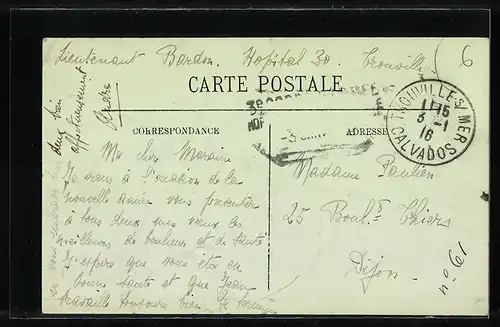 Lieutenant Bardon. Hopital 30. Trouville
6
CARTE POSTALE
TROUVILLE S/ MER
11 15
3 - 1
16
CALVADOS
CORRESPONDANCE
ADRESSE
Ma chère Marraine
Je viens à l'occasion de la
nouvelle année vous présenter
à tous deux mes vœux les
meilleurs de bonheur et de santé
J'espère que vous êtes en
bonne santé et que Jean
travaille toujours bien. Je
deux bien
affectueusement
André
Madame Paulien
25 Boul.d Thiers
Dijon
n° 61